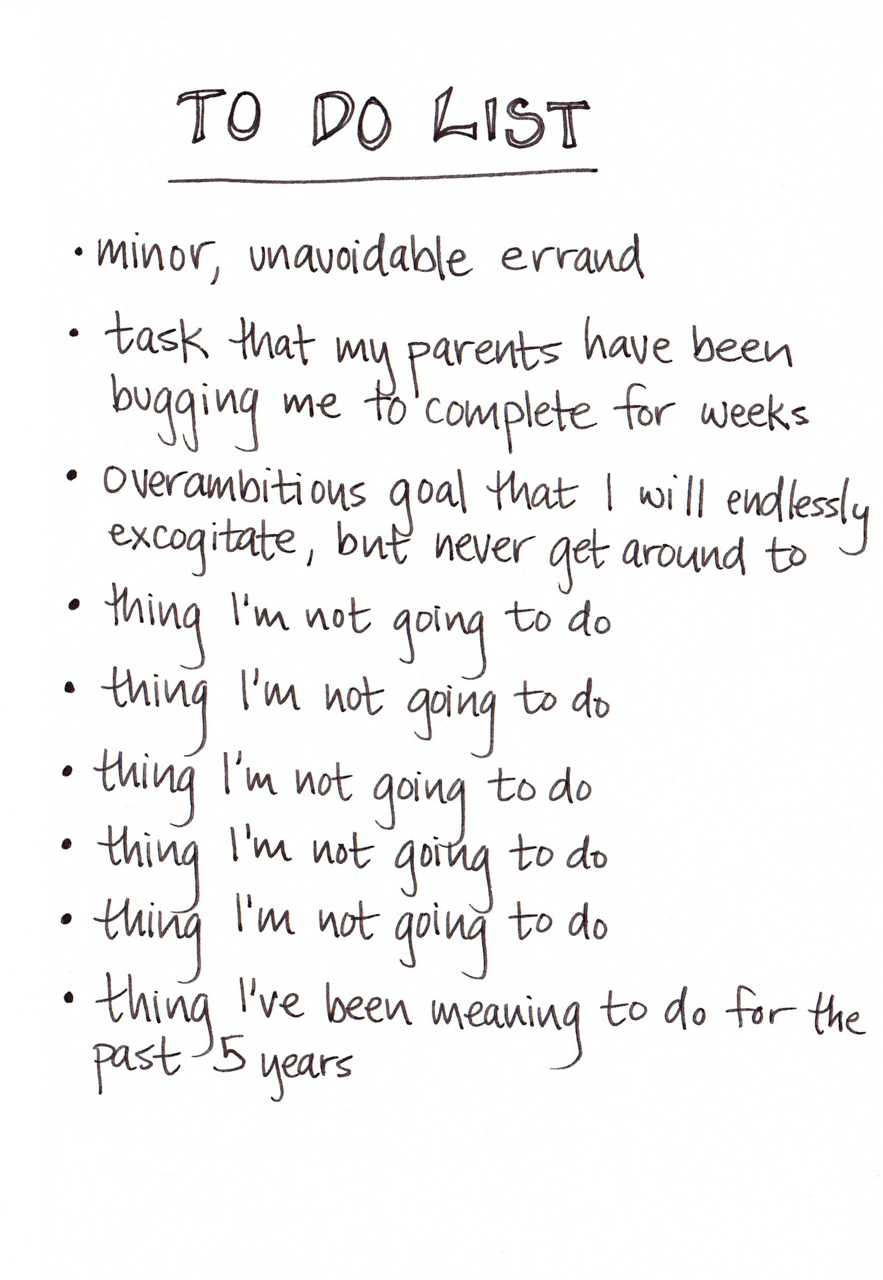 TO DO LIST
• minor, unavoidable errand
• task that my parents have been
bugging me to complete for weeks
• overambitious goal that I will endlessly
excogitate, but never get around to
• thing I'm not going to do
• thing I'm not going to do
• thing I'm not going to do
• thing I'm not going to do
• thing I'm not going to do
• thing I've been meaning to do for the
past 5 years